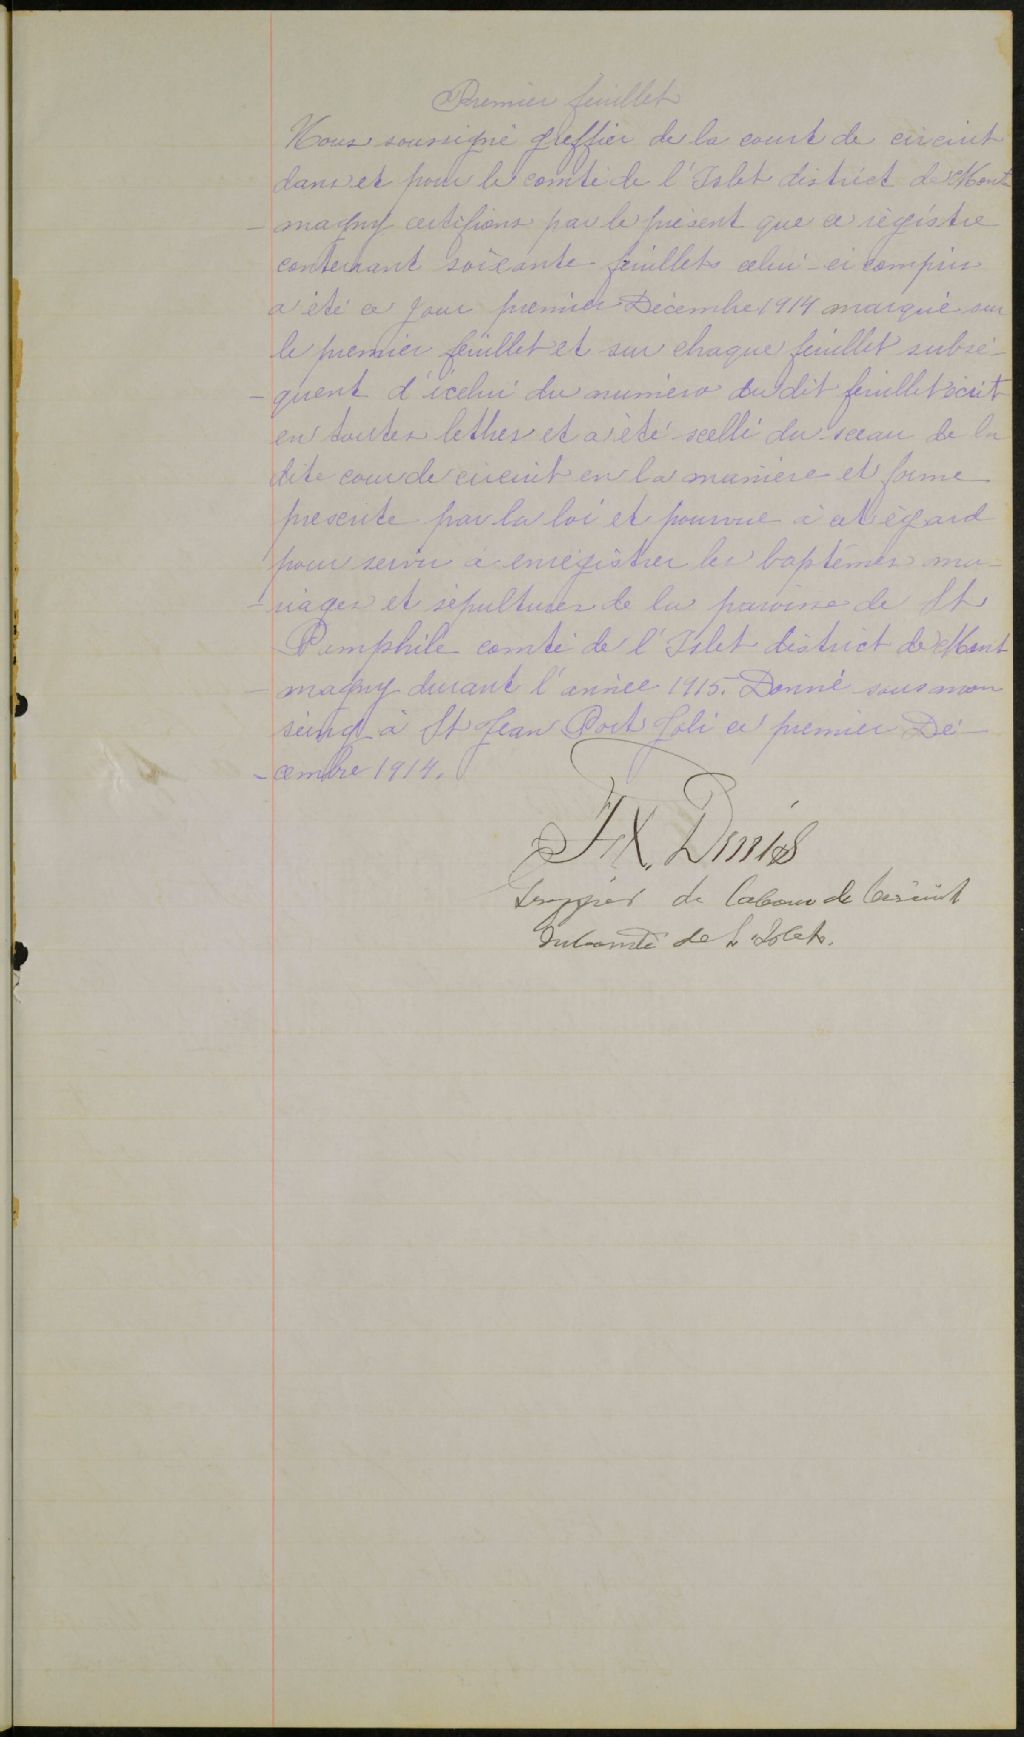 Premier feuillet
Nous soussigné greffier de la court de circuit
dans et pour le comté de l'Islet district de Mont-
magny certifions par le présent que ce régistre
contenant soixante feuillets celui-ci compris
a été ce jour premier Décembre 1914 marqué sur
le premier feuillet et sur chaque feuillet subsé-
quent d'icelui du numéro du dit feuillet écrit
en toutes lettres et a été scellé du sceau de la
dite cour de circuit en la manière et forme
prescrite par la loi et pourvue à cet égard
pour servir à enrégistrer les baptêmes ma-
riages et sépultures de la paroisse de St
Pamphile comté de l'Islet district de Mont
magny durant l'année 1915. Donné sous mon
seing à St Jean Port Joli ce premier Dé-
cembre 1914.
F. X.
Greffier de la Cour de Circuit
du comté de L'Islet.